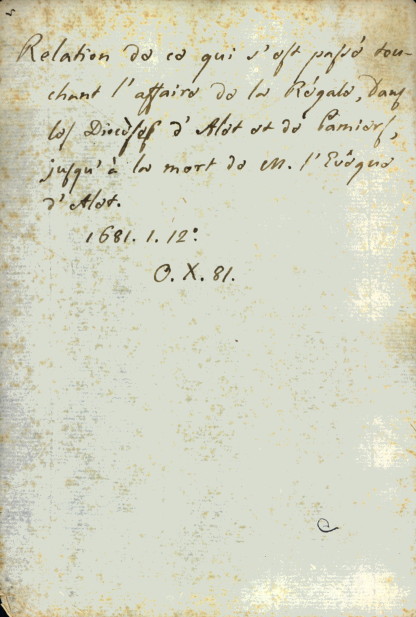 Relation de ce qui s'est passé tou-
chant l'affaire de la Régale, dans
les Diocèses d'Alet et de Pamiers,
jusqu'à la mort de M. l'Evêque
d'Alet.
1681. 1. 12°.
O. X. 81.